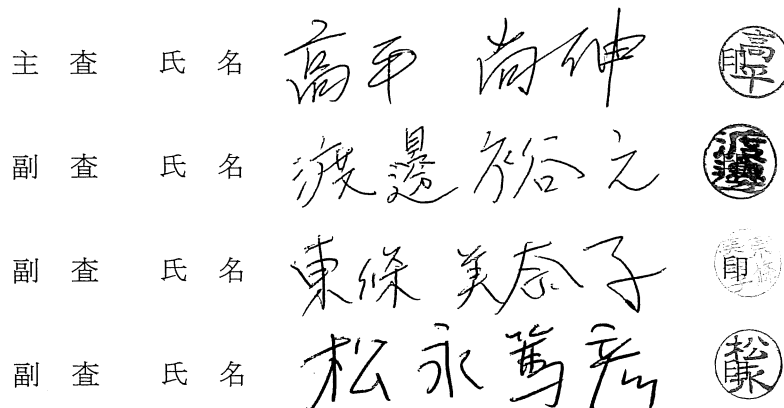 主査 氏名 高平 尚伸 高平 印
副査 氏名 渡邊 裕之 渡邊
副査 氏名 東條 美奈子 印
副査 氏名 松永 篤彦 松永 印